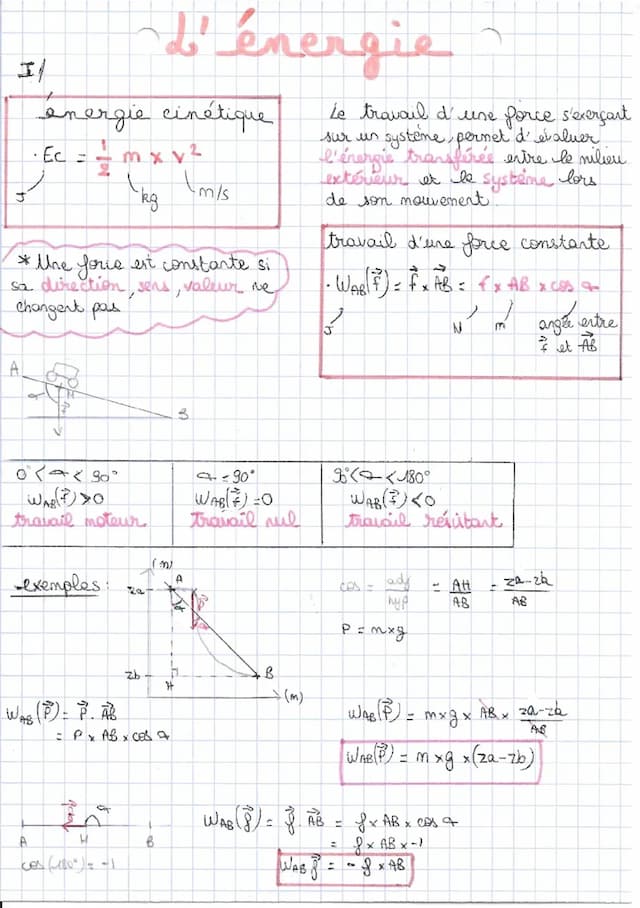 L'énergie
I/
énergie cinétique
· Ec = 1/2 m x v²
J
kg
m/s
Le travail d'une force s'exerçant
sur un système, permet d'évaluer
l'énergie transférée entre le milieu
extérieur et le système lors
de son mouvement.
* Une force est constante si
sa direction, sens, valeur ne
changent pas
travail d'une force constante
· WAB(f⃗) = f⃗ x AB⃗ = f x AB x cos α
J
N
m
angle entre
f⃗ et AB⃗
A
α
M
f⃗
B
V
0° < α < 90°
WAB(f⃗) > 0
travail moteur
α = 90°
WAB(f⃗) = 0
travail nul
90° < α < 180°
WAB(f⃗) < 0
travail résistant
exemples :
(m)
za
A
α
P⃗
zb
H
B
(m)
cos = adj/hyp = AH/AB = za-zb/AB
P = m x g
WAB(P⃗) = P⃗ . AB⃗
= P x AB x cos α
WAB(P⃗) = m x g x AB x za-zb/AB
WAB(P⃗) = m x g x (za-zb)
f⃗
α
A
M
B
cos(180°) = -1
WAB(f⃗) = f⃗ . AB⃗ = f x AB x cos α
= f x AB x -1
WAB f⃗ = - f x AB